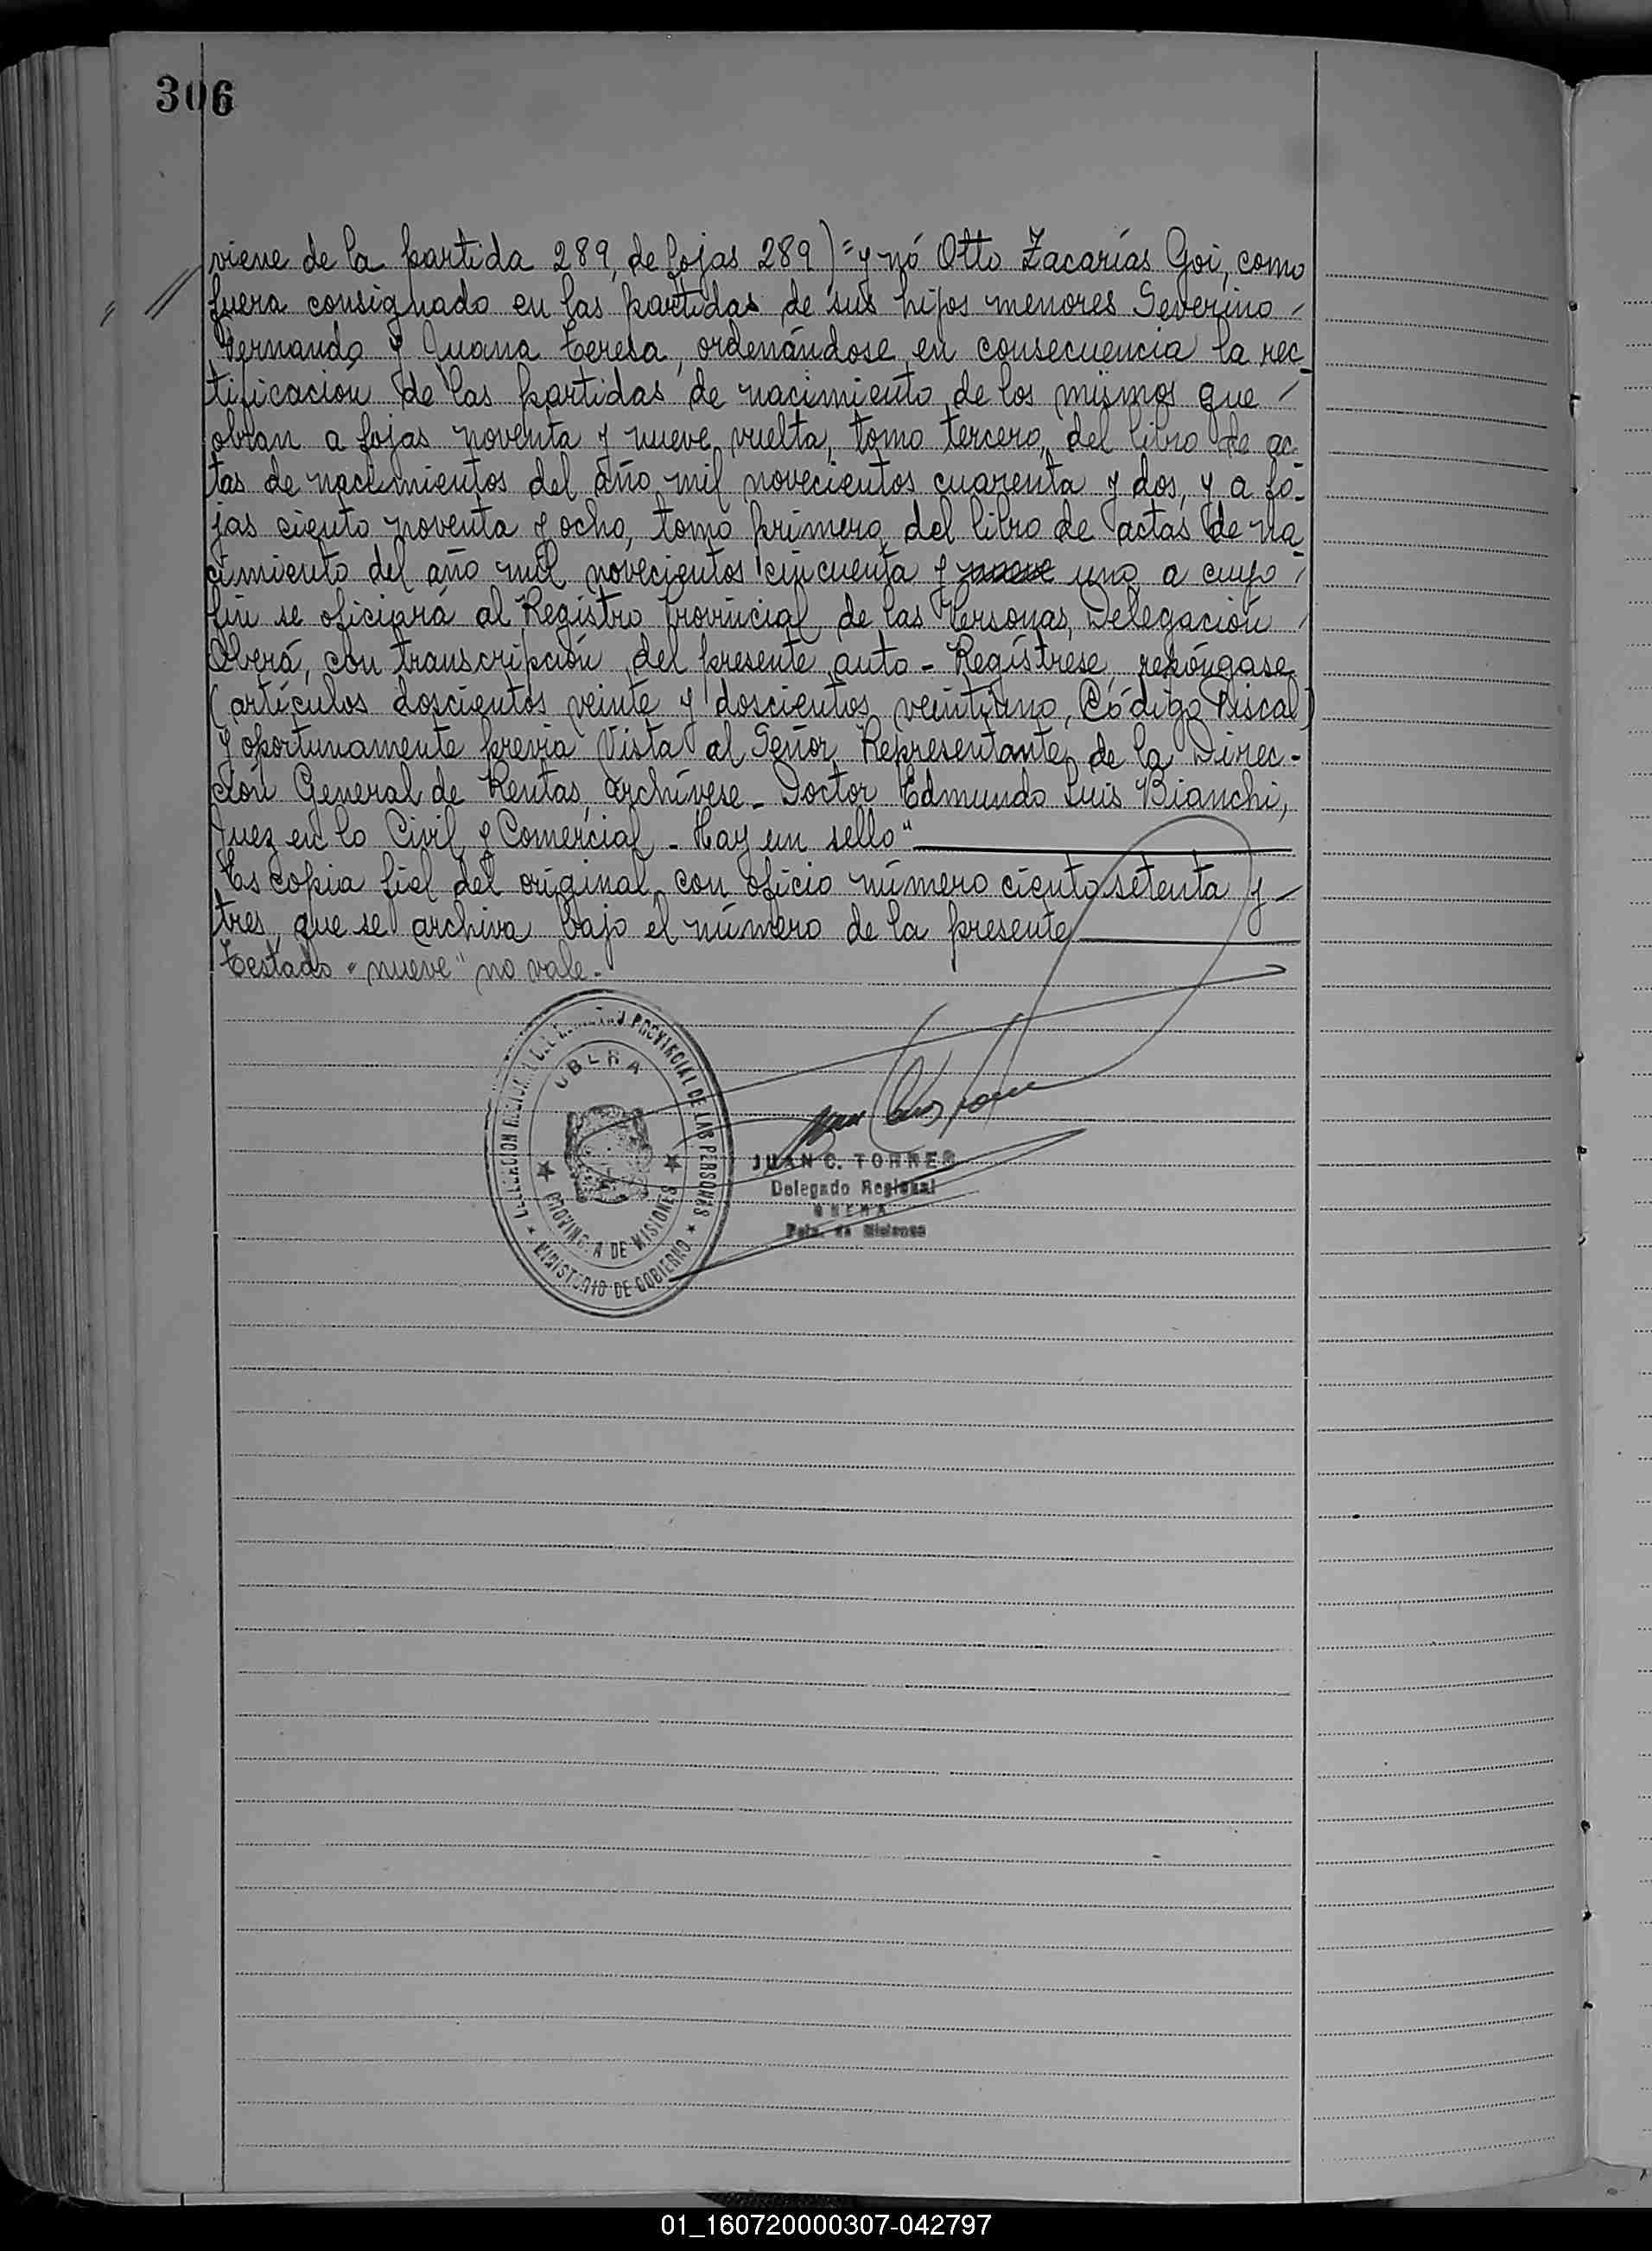 306
viene de la partida 289, de fojas 289) = y nó Otto Zacarías Goi, como
fuera consignado en las partidas de sus hijos menores Severino -
Fernando y Juana Teresa, ordenándose en consecuencia la rec-
tificación de las partidas de nacimiento de los mismos que -
obran a fojas noventa y nueve vuelta, tomo tercero, del libro de ac-
tas de nacimientos del año mil novecientos cuarenta y dos, y a fo-
jas ciento noventa y ocho, tomo primero del libro de actas de na-
cimiento del año mil novecientos cincuenta y nueve uno a cuyo -
fin se oficiará al Registro Provincial de las Personas, Delegación -
Oberá, con transcripción del presente auto - Regístrese, repóngase
(artículos doscientos veinte y doscientos veintiuno, Código Fiscal)
y oportunamente previa Vista al Señor Representante de la Direc-
ción General de Rentas, archívese - Doctor Edmundo Luis Bianchi,
Juez en lo Civil y Comercial - Hay un sello"
Es copia fiel del original con oficio número ciento setenta y -
tres, que se archiva bajo el número de la presente
Testado "nueve" no vale.-
PROVINCIAL DE LAS PERSONAS
OBERA
PROVINCIA DE MISIONES
MINISTERIO DE GOBIERNO
JUAN C. TORRES
Delegado Regional
OBERA
Pcia. de Misiones
01_160720000307-042797